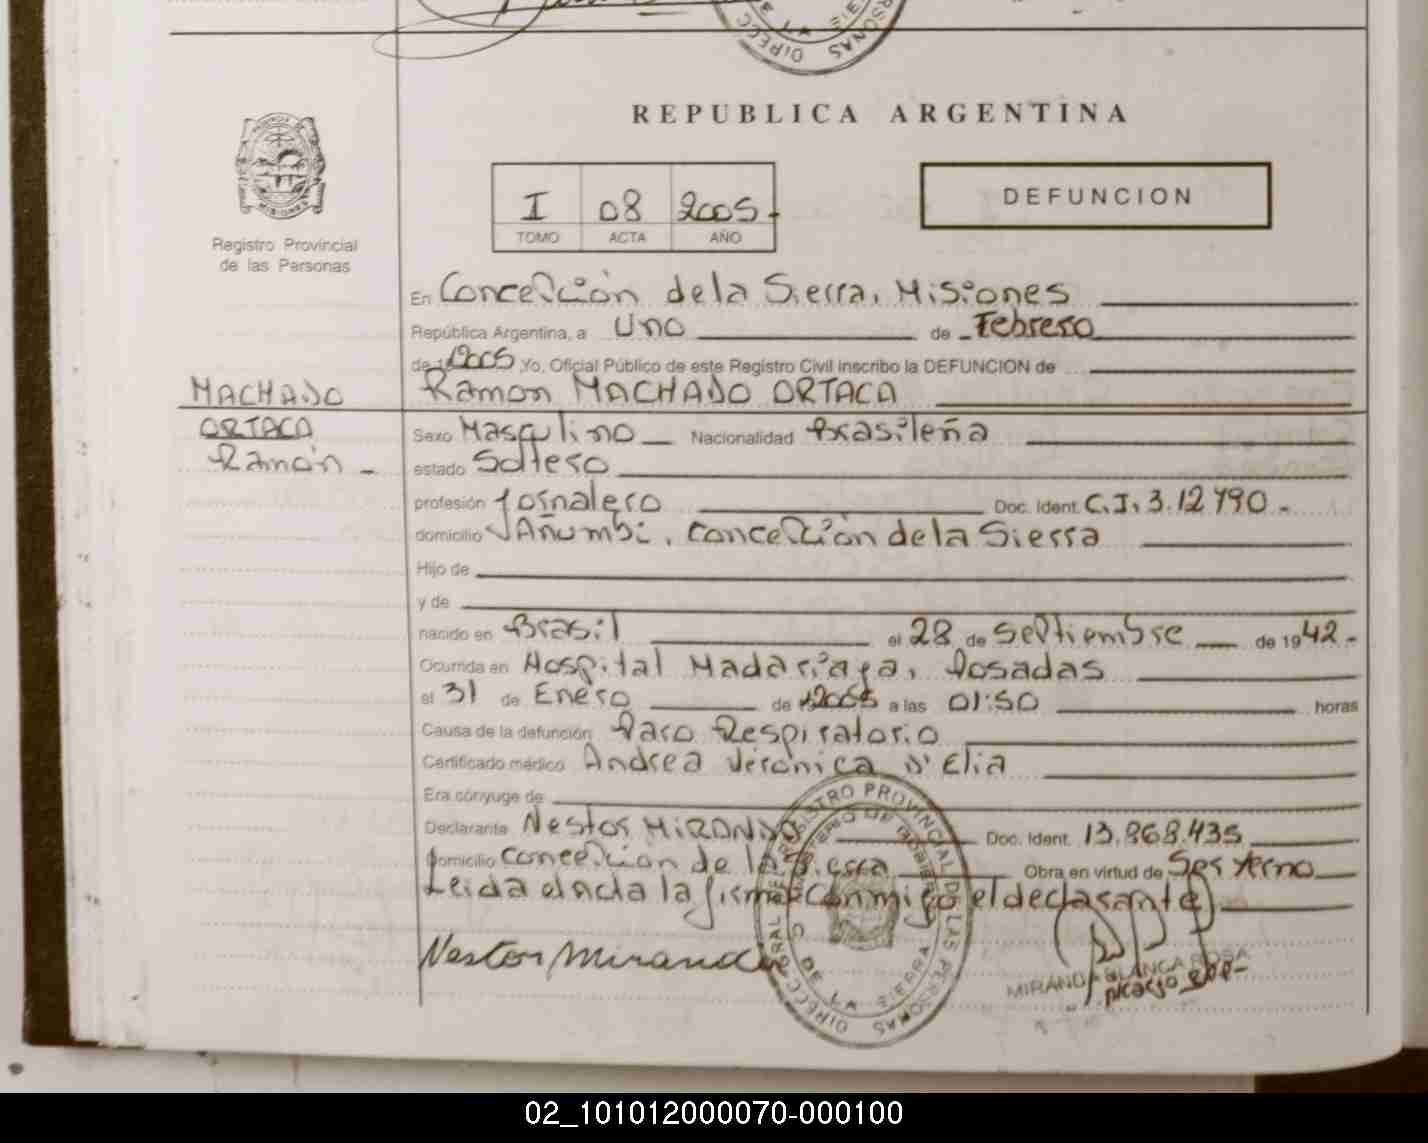 REPUBLICA ARGENTINA
I 08 2005-
TOMO ACTA AÑO
DEFUNCION
Registro Provincial
de las Personas
En Concepción de la Sierra, Misiones
República Argentina, a Uno de Febrero
de 2005 Yo, Oficial Público de este Registro Civil inscribo la DEFUNCION de
MACHADO Ramon MACHADO ORTACA
ORTACA Sexo Masculino Nacionalidad Brasileña
Ramón - estado Soltero
profesión Jornalero Doc. Ident. C.I. 3.12.790.-
domicilio Añumbi, Concepción de la Sierra
Hijo de
y de
nacido en Brasil el 28 de Septiembre de 1942.-
Ocurrida en Hospital Madariaga, Posadas
el 31 de Enero de 2005 a las 01:50 horas
Causa de la defunción Paro Respiratorio
Certificado médico Andrea Verónica D'Elia
Era cónyuge de
Declarante Nestor MIRANDA Doc. Ident. 13.868.435
Domicilio Concepcion de la Sierra Obra en virtud de Ser Yerno
Leida el acta la firma conmigo el declarante
Nestor Miranda
MIRANDA BLANCA ROSA
DIRECC GRAL REGISTRO PROVINCIAL DE LAS PERSONAS
C DE LA SIERRA
02_101012000070-000100